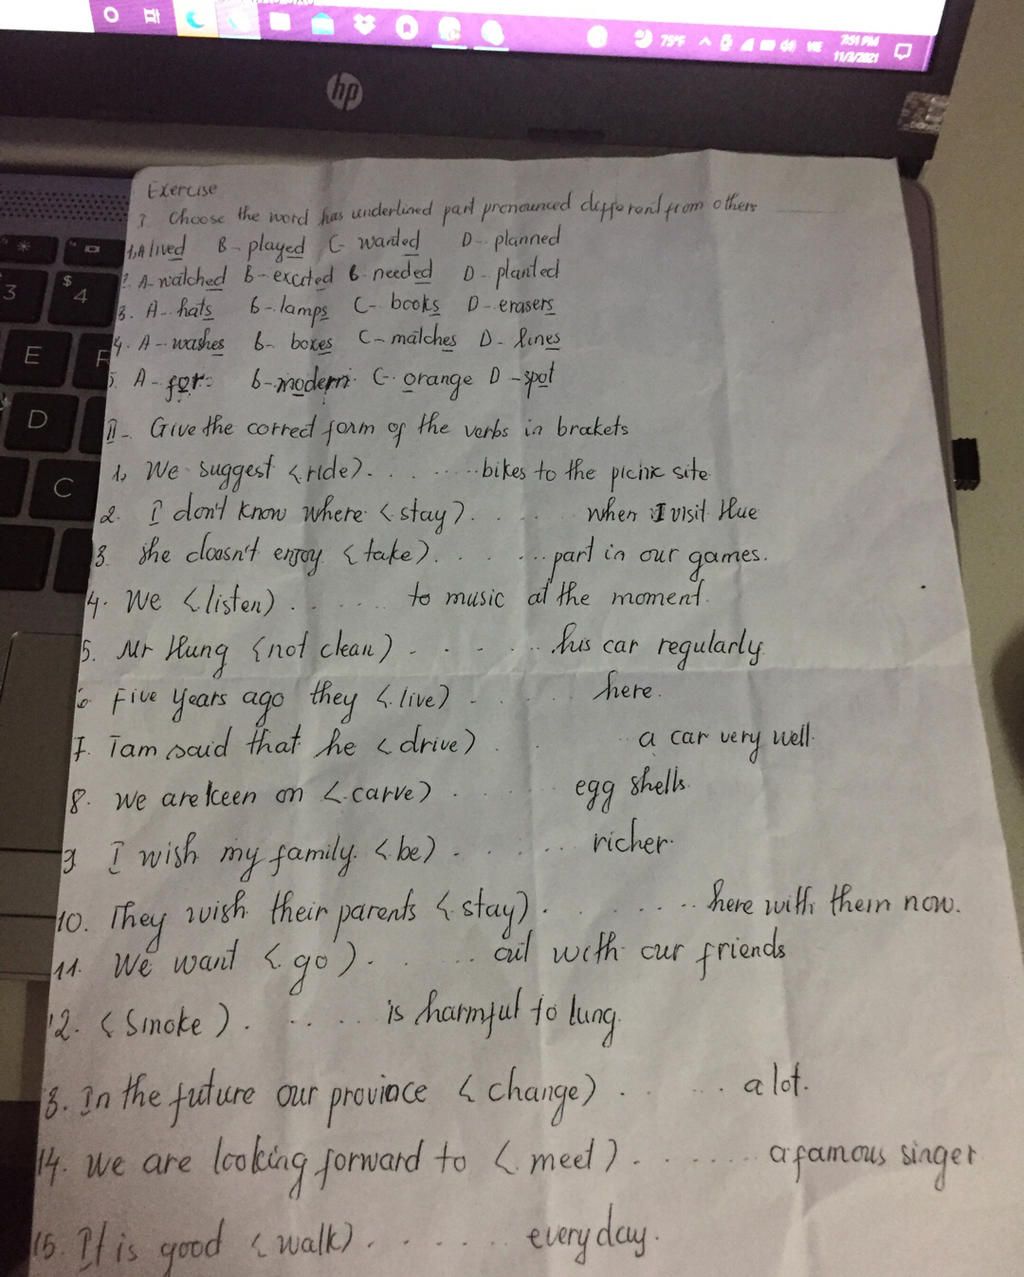 75°F VIE 7:51 PM
11/3/2021
hp
3 $ 4
E F
D
C
Exercise
I. Choose the word has underlined part pronounced different from others
1, A lived B- played C- wanted D- planned
2. A- watched B- excited C- needed D- planted
3. A- hats B- lamps C- books D- erasers
4. A- washes B- boxes C- matches D- lines
5. A- for B- modern C- orange D- spot
II- Give the correct form of the verbs in brakets
1, We suggest (ride)..........bikes to the picnic site
2. I don't know where (stay)........ when I visit Hue
3. She doesn't enjoy (take)........part in our games.
4. We (listen)........ to music at the moment.
5. Mr Hung (not clean)........his car regularly
6 Five years ago they (live)........ here.
7. Tam said that he (drive)..... a car very well.
8. We are keen on (carve)...... egg shells.
9 I wish my family (be)...... richer.
10. They wish their parents (stay)........here with them now.
11. We want (go)...... out with our friends
12. (Smoke)...... is harmful to lung.
3. In the future our province (change)...... a lot.
14. We are looking forward to (meet)....... a famous singer
15. It is good (walk)...... every day.